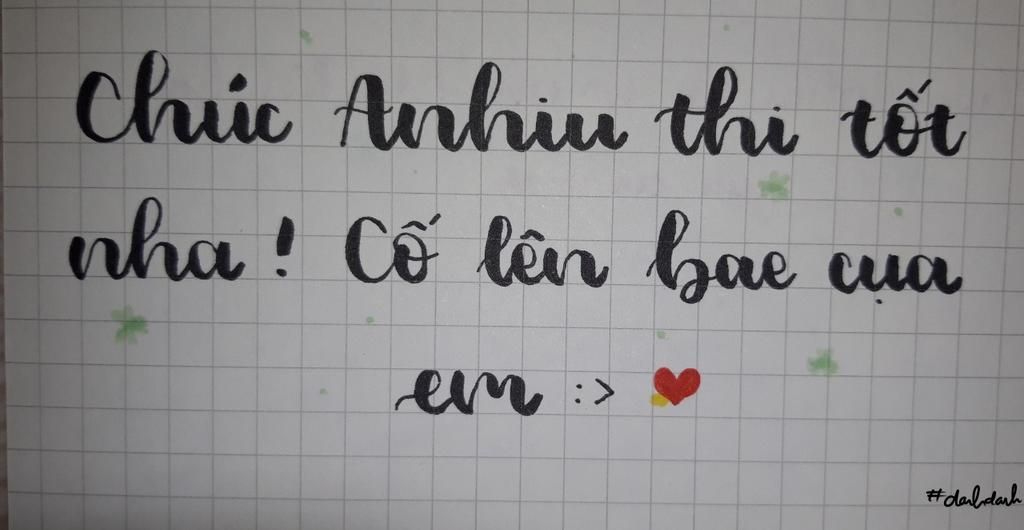 Chúc Anhiu thi tốt
nha! Cố lên bae cụa
em :> ❤️
#danhdanh